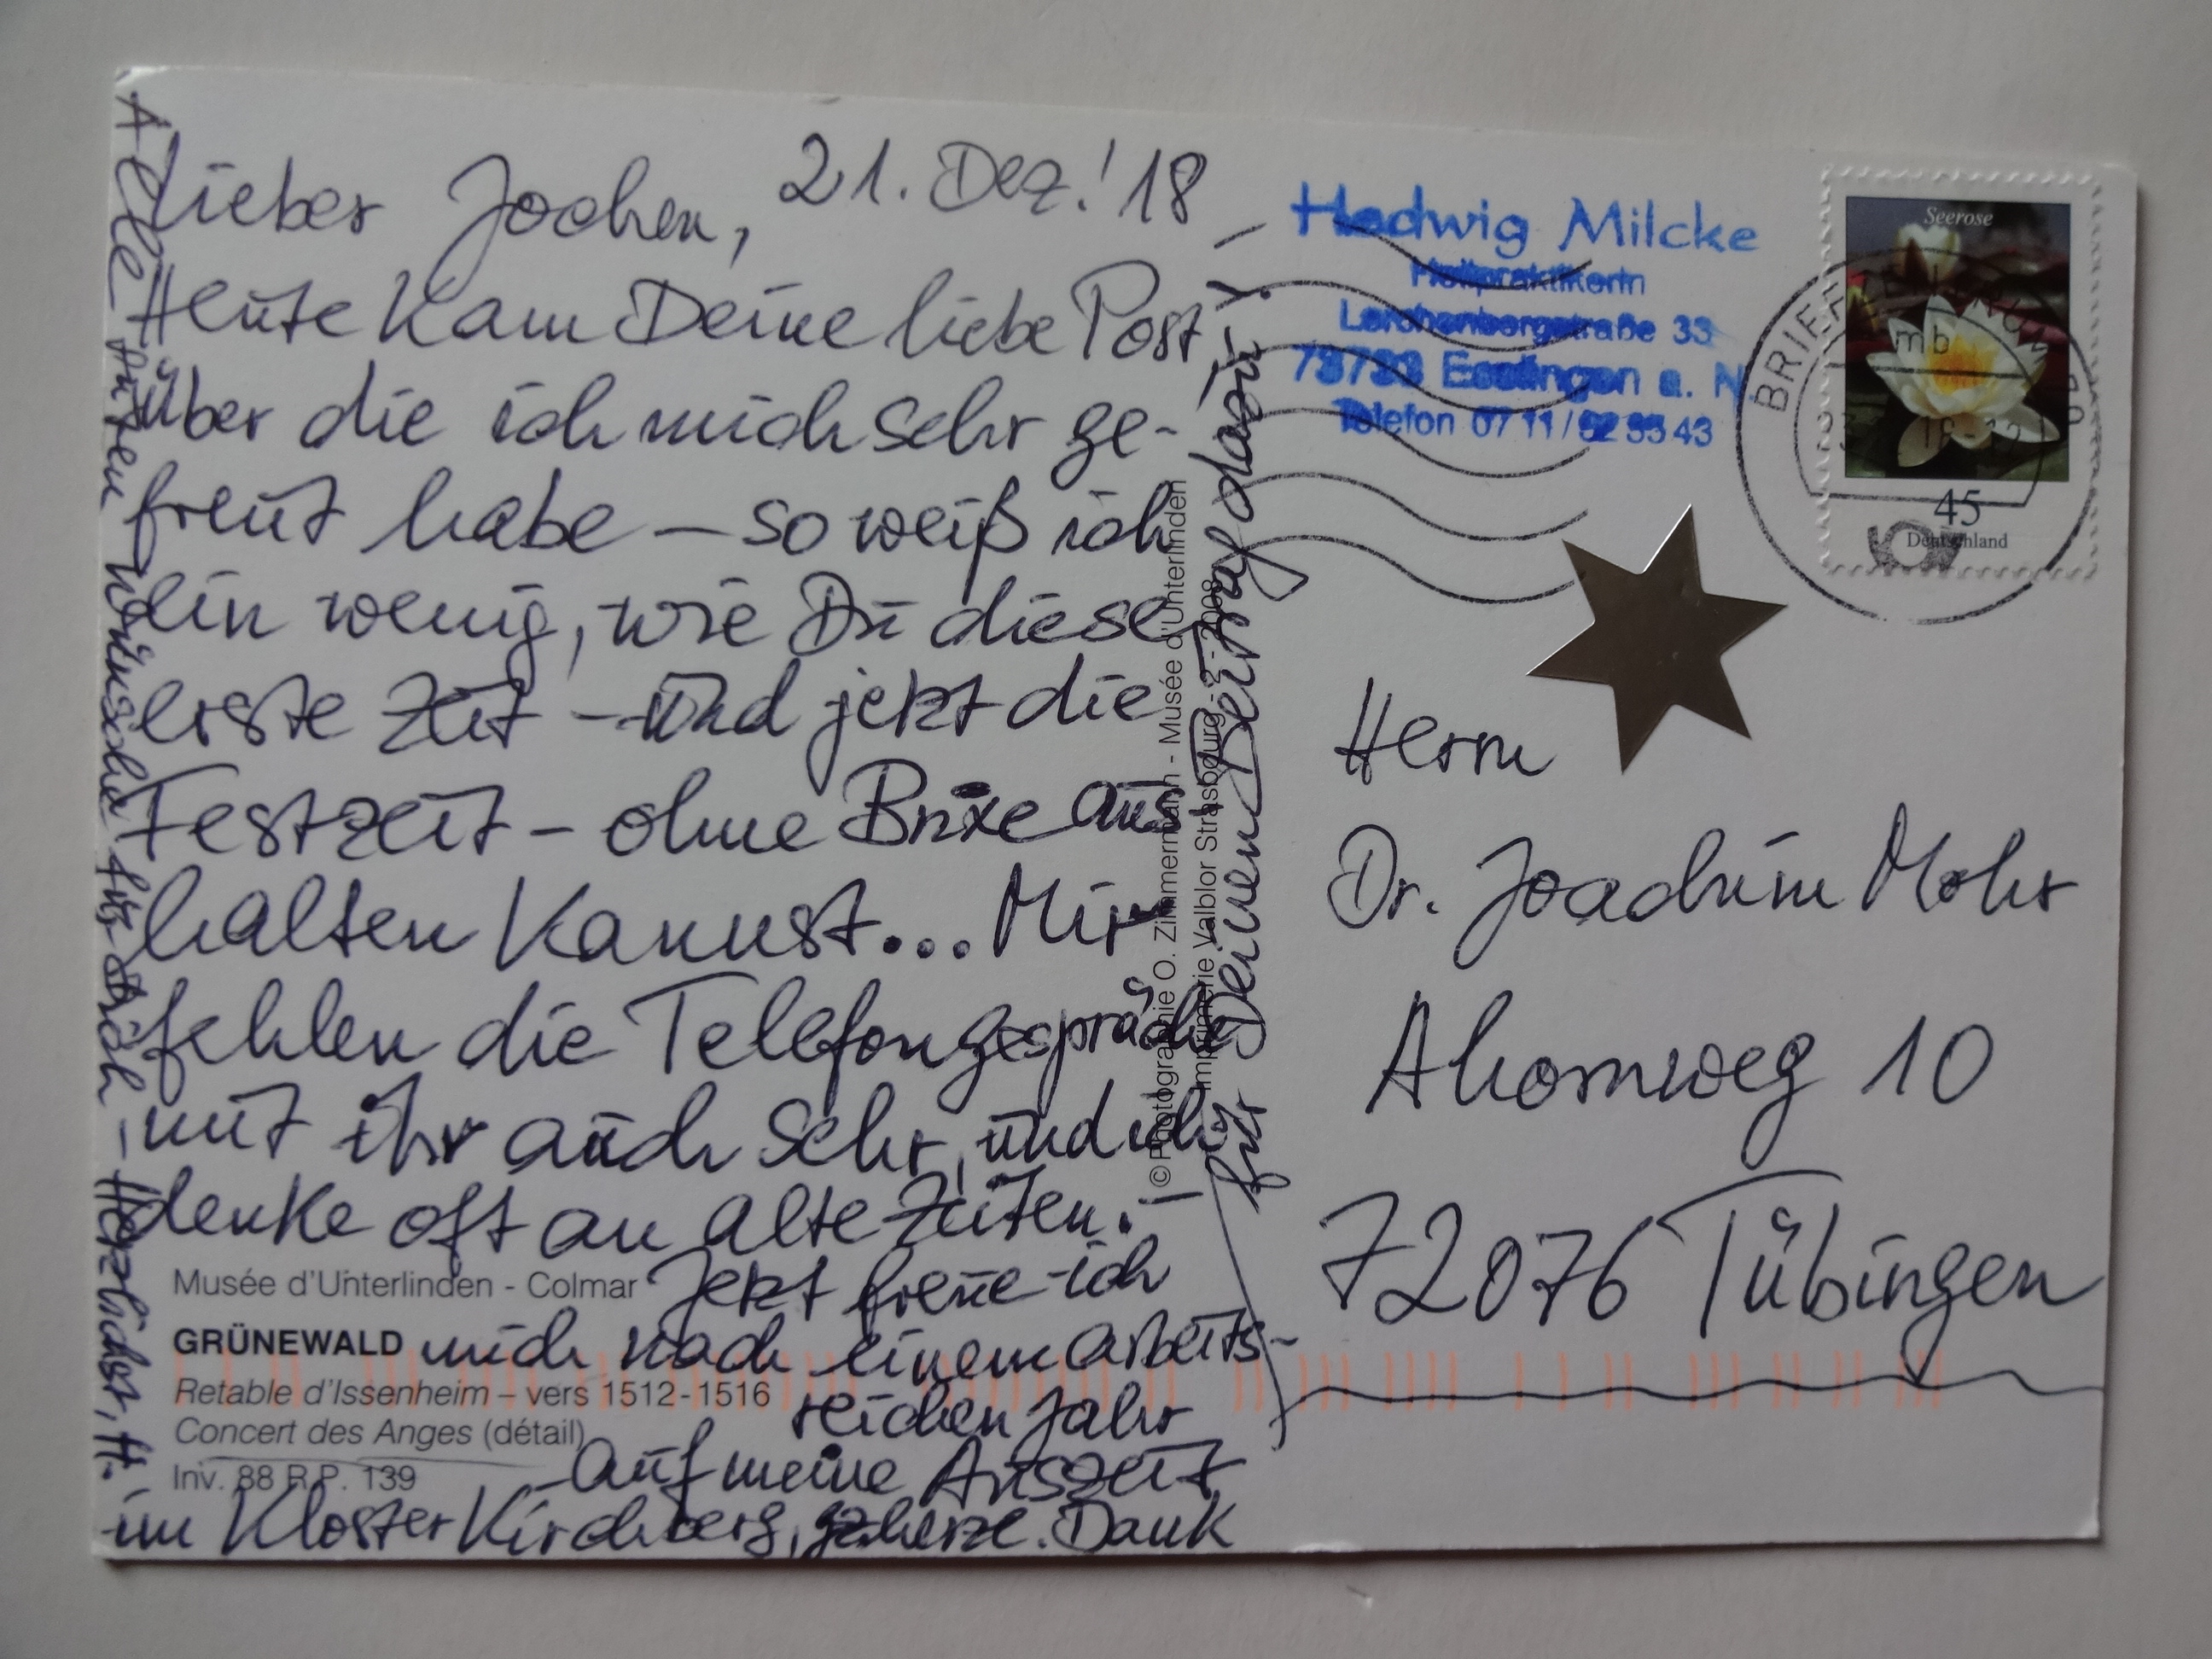 Lieber Jochen, 21. Dez.'18
Heute kam Deine liebe Post
über die ich mich sehr ge-
freut habe – so weiß ich
ein wenig, wie Du diese
erste Zeit – und jetzt die
Festzeit – ohne Brixe aus
halten kannst... Mir
fehlen die Telefongespräche
mit ihr auch sehr, und ich
denke oft an alte Zeiten.
Jetzt freue ich
mich nach einem arbeits-
reichen Jahr
auf meine Auszeit
im Kloster Kirchberg, Dank
für Deinen Beitrag dazu!
Alle guten Wünsche für Dich – Herzlichst, H.
Musée d'Unterlinden - Colmar
GRÜNEWALD
Retable d'Issenheim – vers 1512-1516
Concert des Anges (détail)
Inv. 88 R.P. 139
© Photographie O. Zimmermann - Musée d'Unterlinden
Imprimerie Valblor Strasbourg - 2 - 2008
Hedwig Milcke
Heilpraktikerin
Lerchenbergstraße 33
73733 Esslingen a. N
Telefon 07 11/
Seerose
45
Deutschland
BRIEF
mb
Herrn
Dr. Joachim Mohr
Ahornweg 10
72076 Tübingen